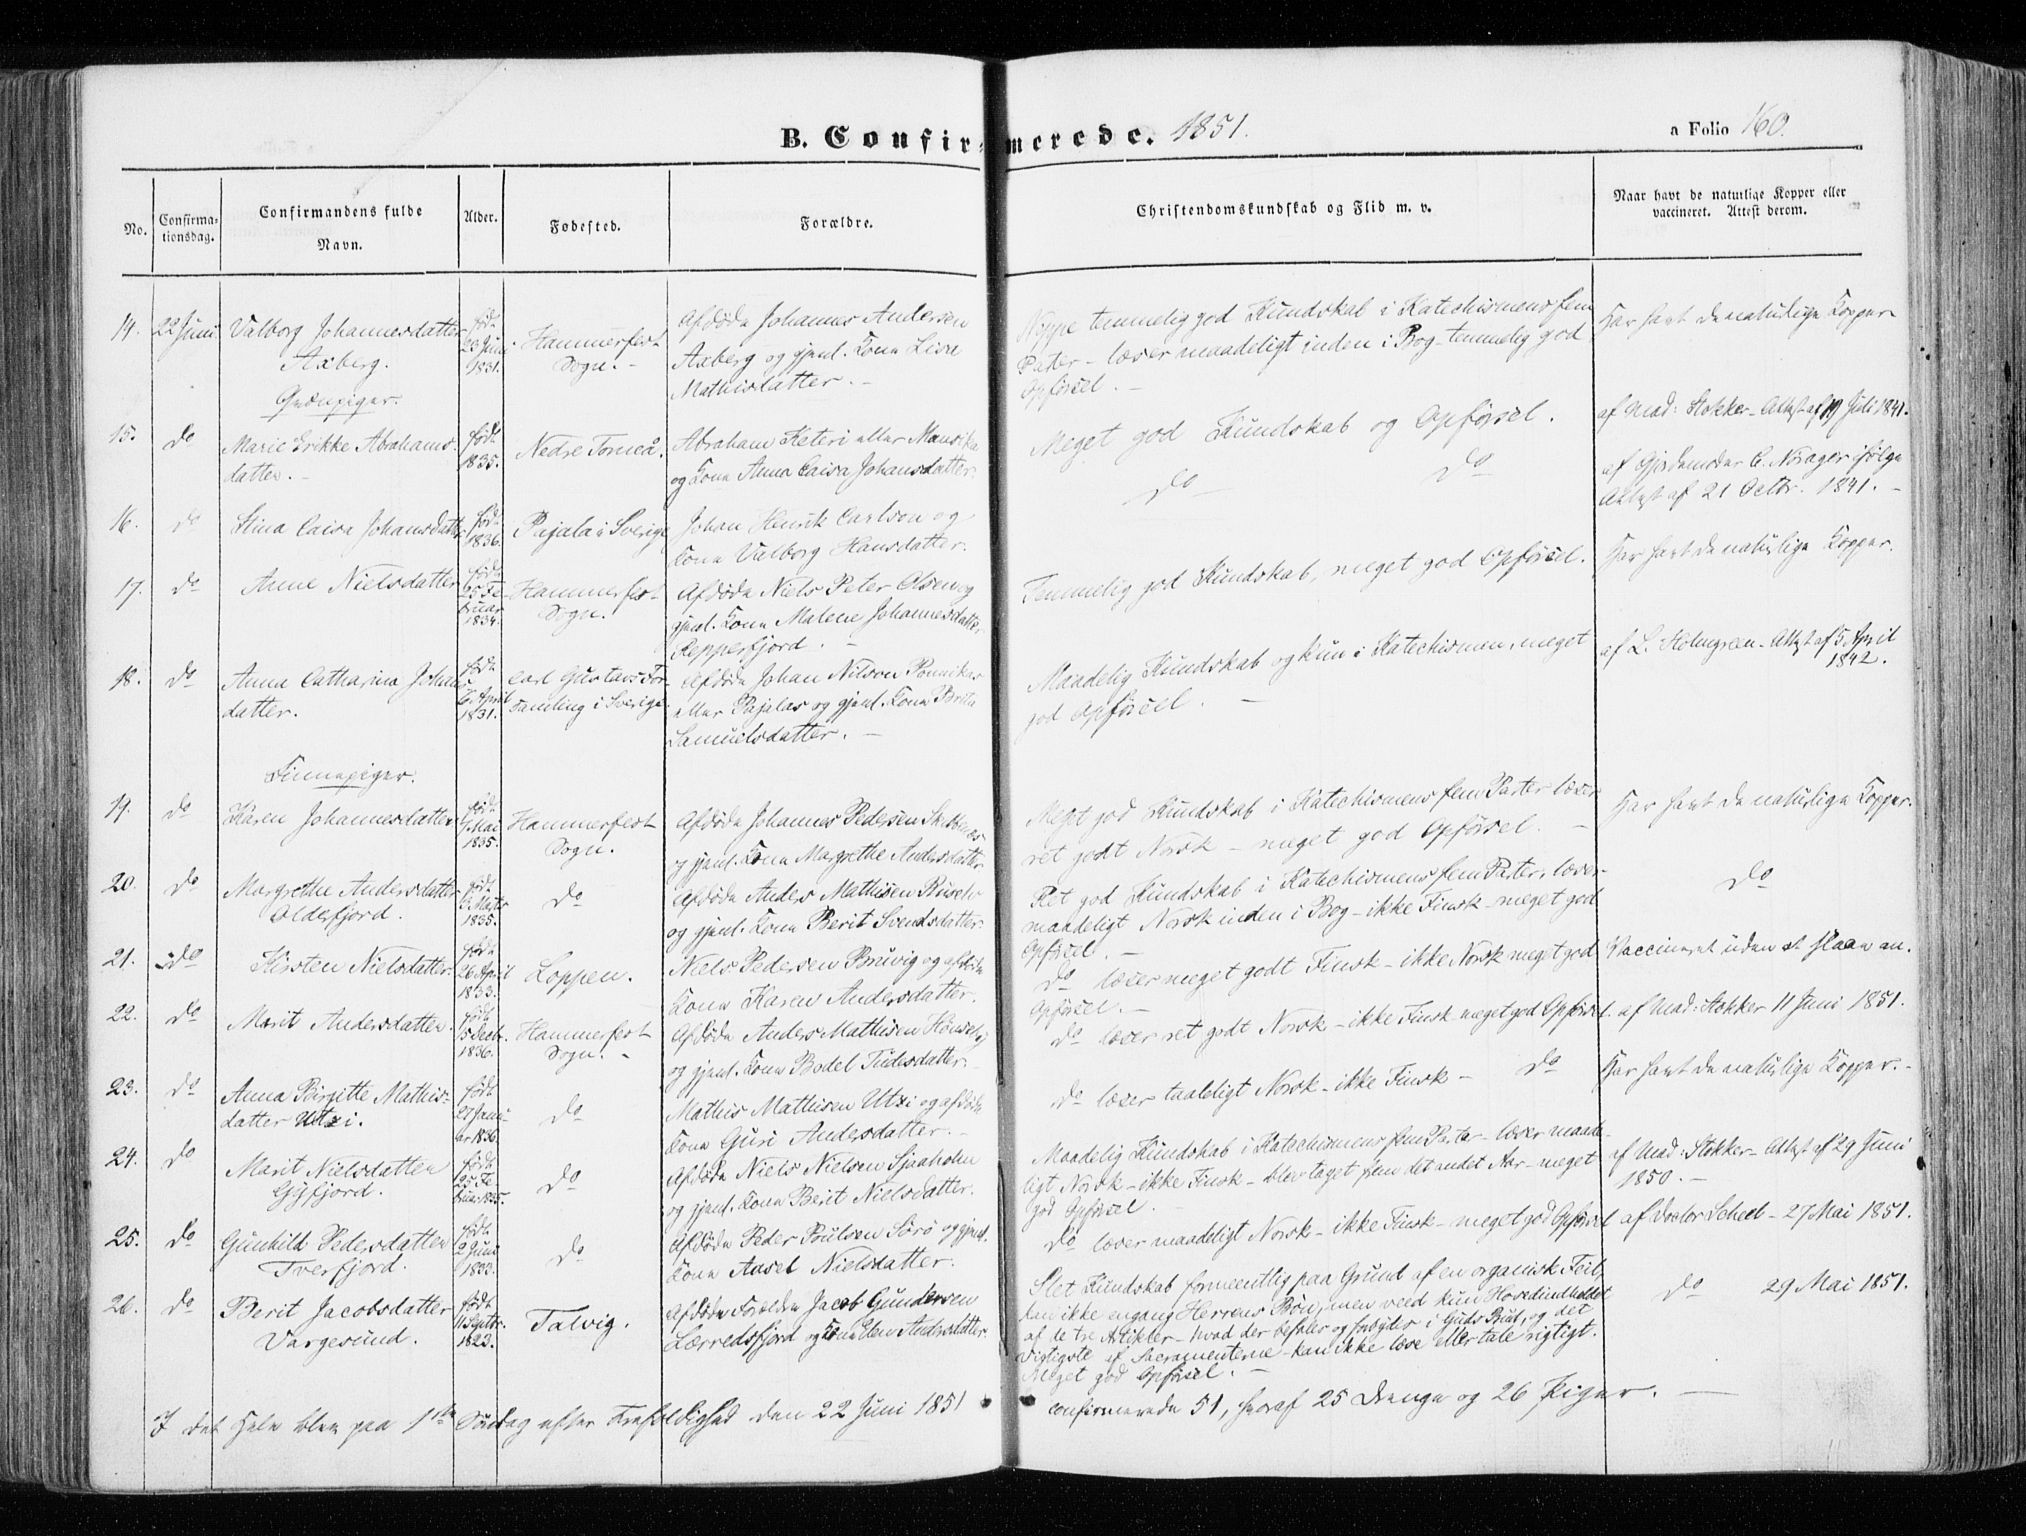 B. Confirmerede. 1851.
a Folio 160.
No.
Confirmationsdag.
Confirmandens fulde Navn.
Alder.
Fødested.
Forældre.
Christendomskundskab og Flid m. v.
Naar havt de naturlige Kopper eller vaccineret. Attest derom.
14. 22 Juni Valborg Johannesdatter
Axberg.
født 23 Juni 1831.
Hammerfest Sogn.
Afdøde Johannes Andersen
Axberg og gjenl. Kone Lisve
Mathisdatter.
Noppe temmelig god Kundskab i Katechismens fem
Parter - læser maadeligt inden i Bog - temmelig god
Opførsel.
Har havt de naturlige Kopper
Qvænpiger.
15. do Marie Erikke Abrahams-
datter.
født 1835.
Nedre Torneå.
Abraham Keteri eller Mansika
og Kone Anna Caisa Johansdatter.
Meget god Kundskab og Opførsel.
af Mad: Stokker - Attest af 19 Juli 1841.
16. do Stina Caisa Johansdatter
født 1836.
Pajala i Sverige
Johan Henrik Carlson og
Kone Valborg Hansdatter.
do do
af Gjordemoder C. Norager ifølge
Attest af 21 Octbr. 1841.
17. do Anne Nielsdatter
født 25 Februar 1834.
Hammerfest Sogn.
Afdøde Niels Peter Olsen og
gjenl. Kone Malene Johannesdatter
Repperfjord.
Temmelig god Kundskab, meget god Opførsel.
Har havt de naturlige Kopper.
18. do Anna Catharina Johans-
datter.
født 6 April 1831.
Carl Gustavs For-
samling i Sverige
Afdøde Johan Nilson Ponnikas
eller Pajalas og gjenl. Kone Brita
Samuelsdatter.
Maadelig Kundskab og kun i Katechismen, meget
god Opførsel.
af L. Holmgreen - Attest af 5 April
1842.
Finnepiger.
19. do Karen Johannesdatter
født 7 Mai 1835.
Hammerfest Sogn.
Afdøde Johannes Pedersen
og gjenl. Kone Margrethe Andersdatter
Meget god Kundskab i Katechismens fem Parter læser
ret godt Norsk - meget god Opførsel.
Har havt de naturlige Kopper.
20. do Margrethe Andersdatter
Oldefjord.
født 6 Marts 1835.
do
Afdøde Anders Mathisen
og gjenl. Kone Berit Svendsdatter.
Ret god Kundskab i Katechismens fem Parter, læser
maadeligt Norsk inden i Bog - ikke Finsk - meget god
Opførsel.
do
21. do Kirsten Nielsdatter.
født 26 April 1833.
Loppen.
Niels Pedersen Bruvig og afdøde
Kone Karen Andersdatter.
do læser meget godt Finsk - ikke Norsk meget god
Opførsel.
Vaccineret uden at slaae an.
22. do Marit Andersdatter.
født 15 Decbr. 1836.
Hammerfest Sogn.
Afdøde Anders Mathisen
og gjenl. Kone Bodel Tudesdatter.
do læser ret godt Norsk - ikke Finsk meget god Opførsel.
af Mad: Stokker 11 Juni 1851.
23. do Anna Birgitte Mathis-
datter Utzi.
født 27 Januar 1836.
do
Mathis Mathisen Utzi og afdøde
Kone Guri Andersdatter.
do læser taaleligt Norsk - ikke Finsk - do
Har havt de naturlige Kopper.
24. do Marit Nielsdatter
Gyfjord.
født 25 Februar 1835.
do
Afdøde Niels Nielsen Sjaaholm
og gjenl. Kone Berit Nielsdatter.
Maadelig Kundskab i Katechismens fem Parter - læser maade-
ligt Norsk - ikke Finsk - blev taget frem det andet Aar - meget
god Opførsel.
af Mad: Stokker - Attest af 29 Juni
1850.
25. do Gunhild Pedersdatter
Tverfjord.
født 9 Juni 1833.
do
Afdøde Peder Poulsen Sørø og gjenl.
Kone Ansel Nielsdatter.
do læser maadeligt Norsk - ikke Finsk - meget god Opførsel
af Doctor Scheel - 27 Mai 1851.
26. do Berit Jacobsdatter
Vargesund.
født 11 Septbr. 1823.
Talvig.
Afdøde Forældre Jacob Gundersen
Lærredsfjord og Kone Elen Andersdatter.
Slet Kundskab formeentlig paa Grund af en organisk Feil,
kan ikke engang Herrens Bøn, men veed kun Hovedindholdet
af de tre Artikler - hvad der befales og forbydes i Guds Bud, og det
Vigtigste af Sacramenterne - kan ikke læse eller tale rigtigt.
Meget god Opførsel.
do 29 Mai 1851.
I det Hele blev paa 1ste Søndag efter Trefoldighed den 22 Juni 1851 confirmerede 51, hvoraf 25 Drenge og 26 Piger.